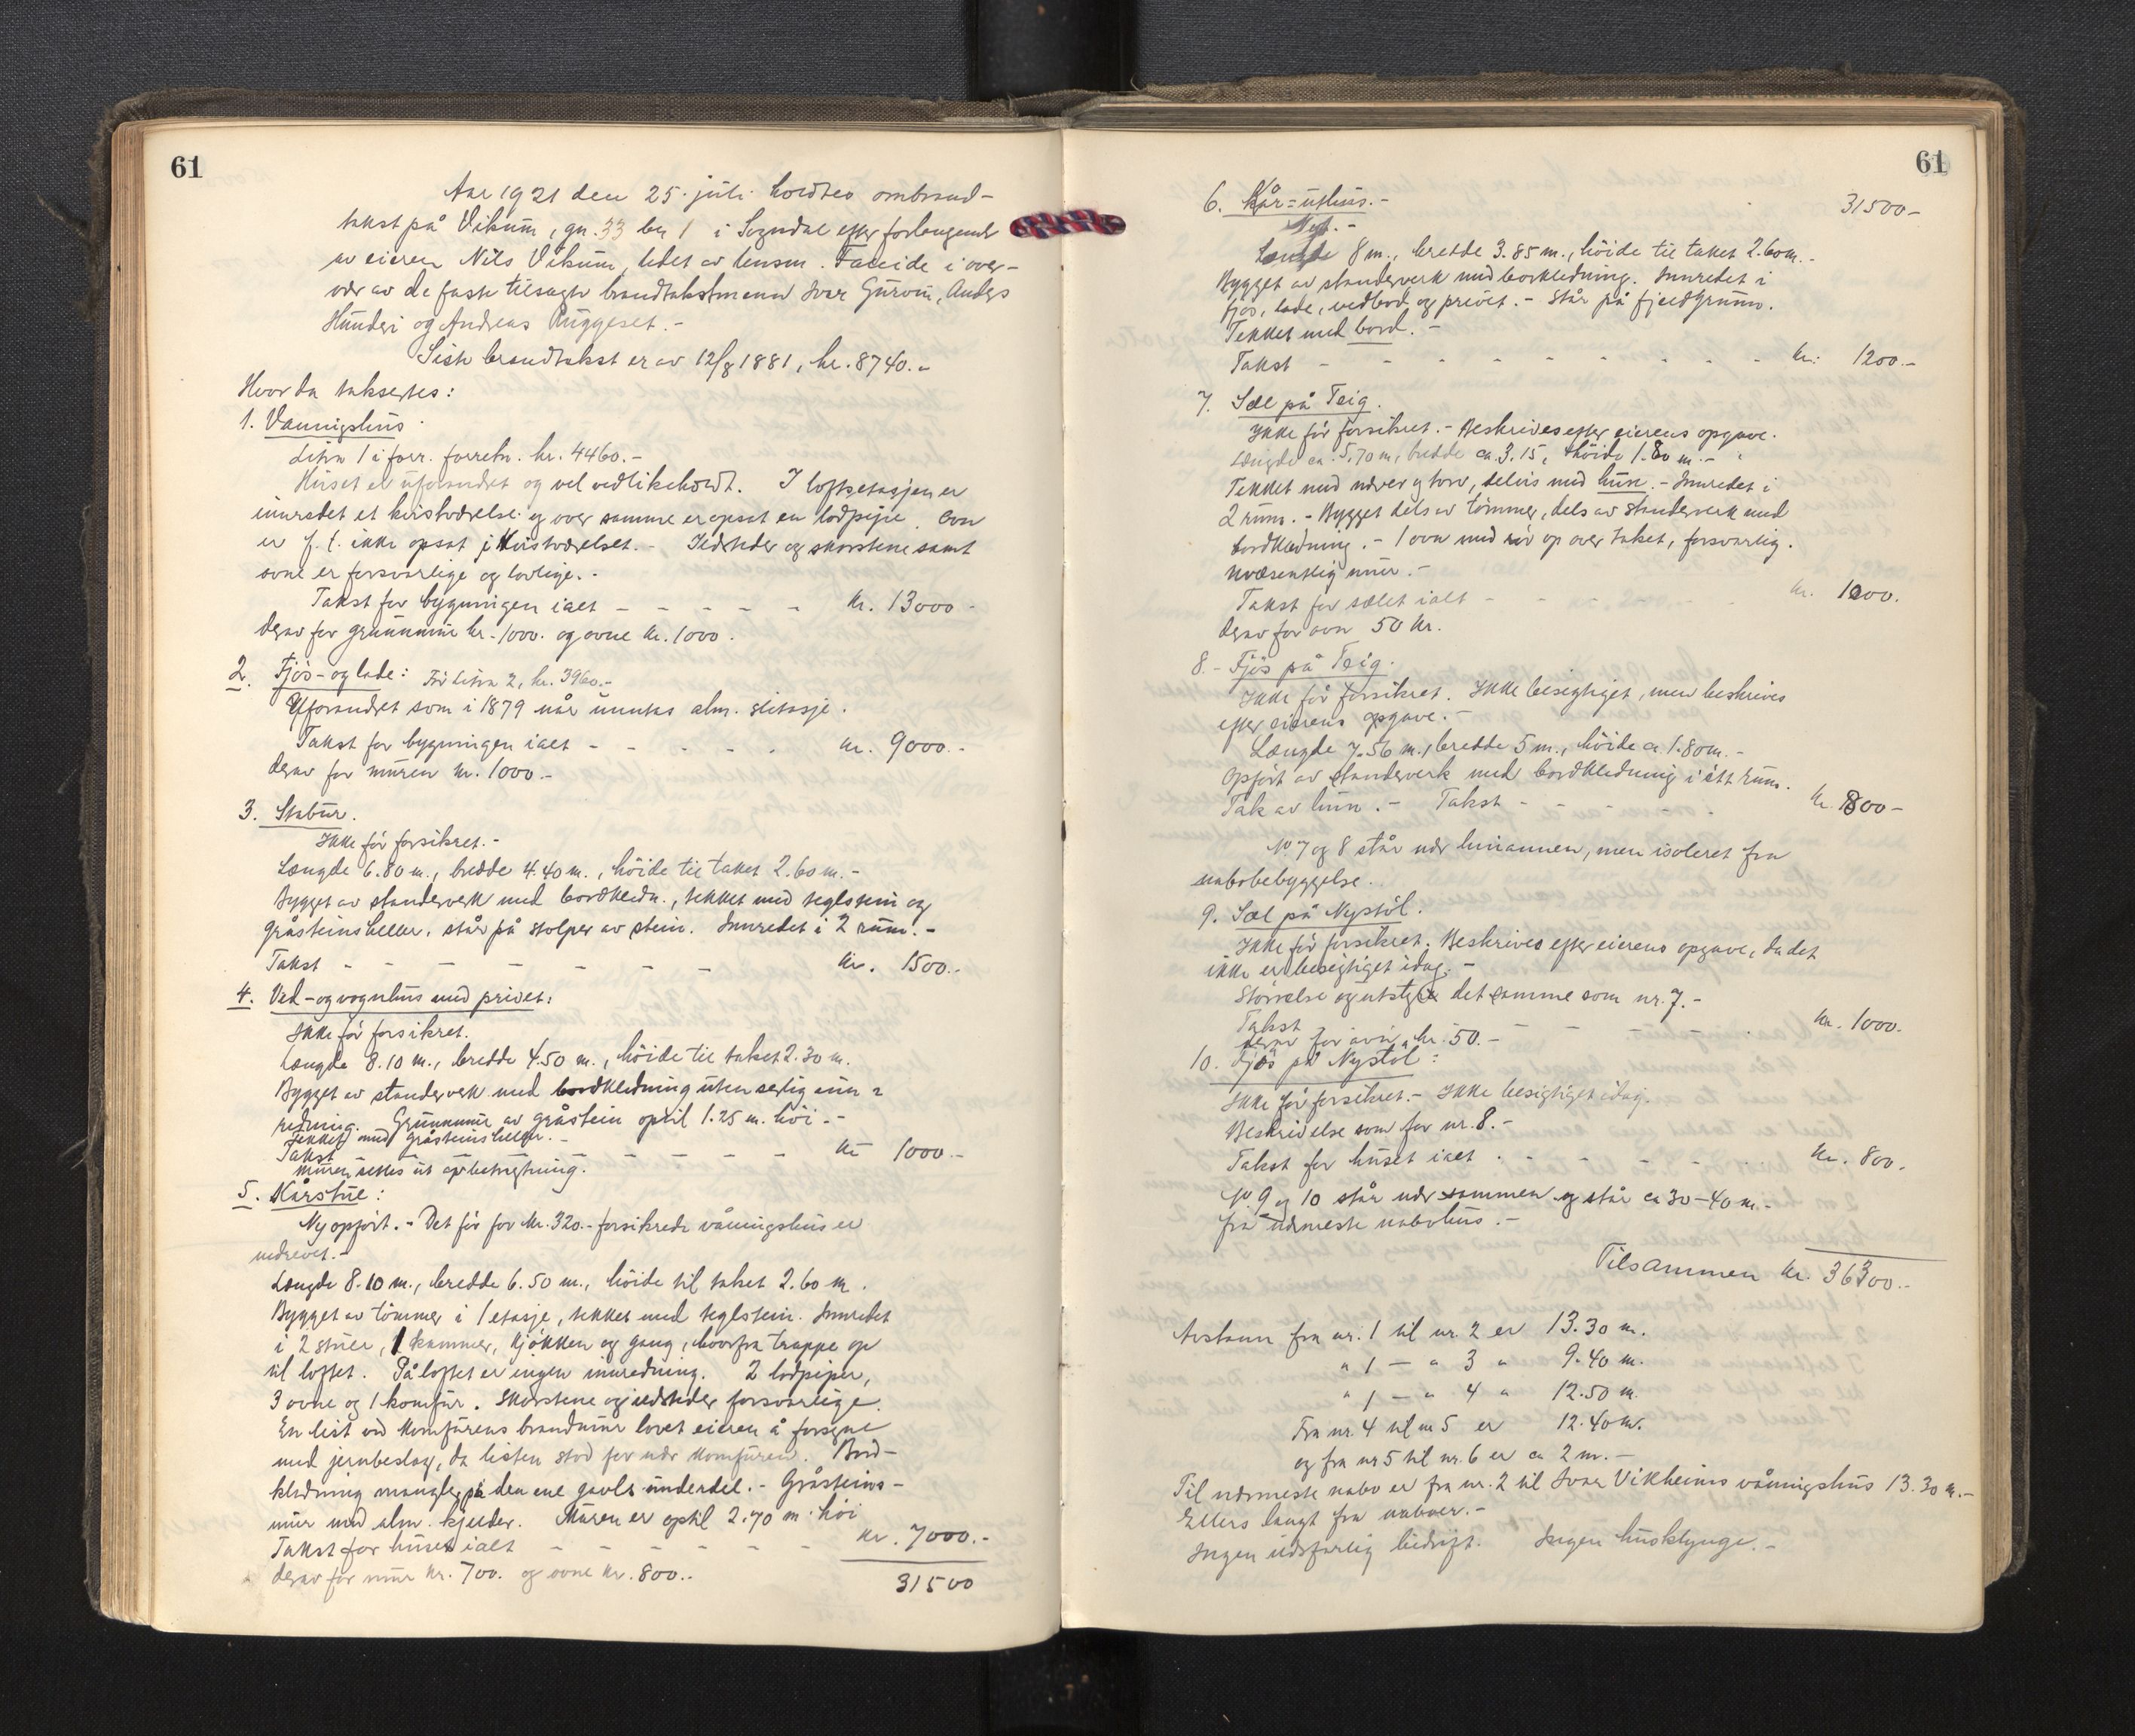 61
Aar 1921 den 25. juli holdtes ombrand-
takst på Vikum, gn. 33 bn 1 i Sogndal efter forlangende
av eieren Nils Vikum, ledet av lensm. Faleide i over-
vær av de faste tilsagte brandtakstmenn Ivar Gurvin, Anders
Hundere og Andreas Ruggeset.-
Siste brandtakst er av 12/8 1881, kr. 8740.-
Hvor da taksertes:
1. Vaaningshus
Litra 1 i forr. forretn. kr. 4460.-
Huset er uforandret og vel vedlikeholdt. I loftsetasjen er
innredet et kvistværelse og over samme er opsat en lodpipe. Ovn
er f. t. ikke opsat i kvistværelset.- Ildsteder og skorstene samt
ovne er forsvarlige og lovlige.-
Takst for bygningen ialt - - - - - kr. 13000-
derav for grunnmur kr. 1000. og ovne kr. 1000.
2. Fjøs- og lade: Før Litra 2, kr. 3960.-
Uforandret som i 1879 når unntas alm. slitasje.
Takst for bygningen ialt - - - - - kr. 9000.-
derav for muren kr. 1000.-
3. Stabur.
Ikke før forsikret.-
Længde 6.80 m., bredde 4.40 m., høide til taket 2.60 m.-
Bygget av standerverk med bordkledn., tekket med teglstein og
gråsteinsheller, står på stolper av stein. Innredet i 2 rum.-
Takst - - - - - - - kr. 1500.-
4. Ved- og vognhus med privet:
Ikke før forsikret.
Længde 8.10 m., bredde 4.50 m., høide til taket 2.30 m.
Bygget av standerverk med bordkledning uten særlig inn=
redning. Grunnmur av gråstein optil 1.25 m. høi.-
Tekket med gråsteinsheller.-
Takst - - - - - - - kr 1000.-
Muren settes ut av betragtning.
5. Kårstue:
Ny opført.- Det før for kr. 320.- forsikrede våningshus er
nedrevet.-
Længde 8.10 m., bredde 6.50 m., høide til taket 2.60 m.
Bygget av tømmer i 1 etasje, tekket med teglstein. Innredet
i 2 stuer, 1 kammer, kjøkken og gang, hvorfra trappe op
til loftet. På loftet er ingen innredning. 2 lodpiper,
3 ovne og 1 komfur. Skorstene og ildsteder forsvarlige.
En list ved komfurens brandmur lovet eieren å forsyne
med jernbeslag, da listen stod for nær komfuren. Bord-
kledning mangler på den ene gavls underdel.- Gråsteins-
mur med alm. kjelder. Muren er optil 2.70 m. høi
Takst for huset ialt - - - - - - kr. 7000.-
derav for mur kr. 700. og ovne kr. 800.-
31500
61
6. Kår=uthus.-
31500-
Nyt.-
Længde 8 m., bredde 3.85 m., høide til taket 2.60 m.-
Bygget av standerverk med bordkledning. Innredet i
fjøs, lade, vedbod og privet.- Står på fjeldgrunn.
Tekket med bord.-
Takst - - - - - - - - kr: 1200.-
7. Sæl på Teig.
Ikke før forsikret.- Beskrives efter eierens opgave.
Længde ca. 5.70 m, bredde ca. 3.15, høide 1.80 m.-
Tekket med never og torv, delvis med hun.- Innredet i
2 rum.- Bygget dels av tømmer, dels av standerverk med
bordkledning.- 1 ovn med rør op over taket, forsvarlig.
Uvæsentlig mur.-
Takst for sælet ialt - - - - - kr. 1000.
derav for ovn 50 kr.
8- Fjøs på Teig.
Ikke før forsikret. Ikke besigtiget, men beskrives
efter eierens opgave.-
Længde 7.56 m., bredde 5 m., høide ca 1.80 m.-
Opført av standerverk med bordkledning i ett rum.
Tak av hun.- Takst - - - - kr. 800-
Nr. 7 og 8 står nær hinannen, men isoleret fra
nabobebyggelse.
9. Sæl på Nystøl.
Ikke før forsikret. Beskrives efter eierens opgave, da det
ikke er besigtiget idag.-
Størrelse og utstyr det samme som nr. 7.-
Takst - - - - - - kr. 1000.
derav for ovn kr. 50.-
10. Fjøs på Nystøl:
Ikke før forsikret.- Ikke besigtiget idag.
Beskrivelse som for nr. 8.-
Takst for huset ialt - - - - - kr. 800.
Nr. 9 og 10 står nær sammen og står ca 30-40 m.-
fra nærmeste nabohus.-
Tilsammen kr. 36300.-
Avstann fra nr. 1 til nr. 2 er 13.30 m.
" 1 - " 3 " 9.40 m.
" 1 - " 4 " 12.50 m.
Fra nr. 4 til nr 5 er 12.40 m.
og fra nr 5 til nr. 6 er ca 2 m.-
Til nærmeste nabo er fra nr. 2 til Ivar Vikheims våningshus 13.30 m.-
Ellers langt fra naboer.-
Ingen ildsfarlig bedrift. Ingen husklynge.-